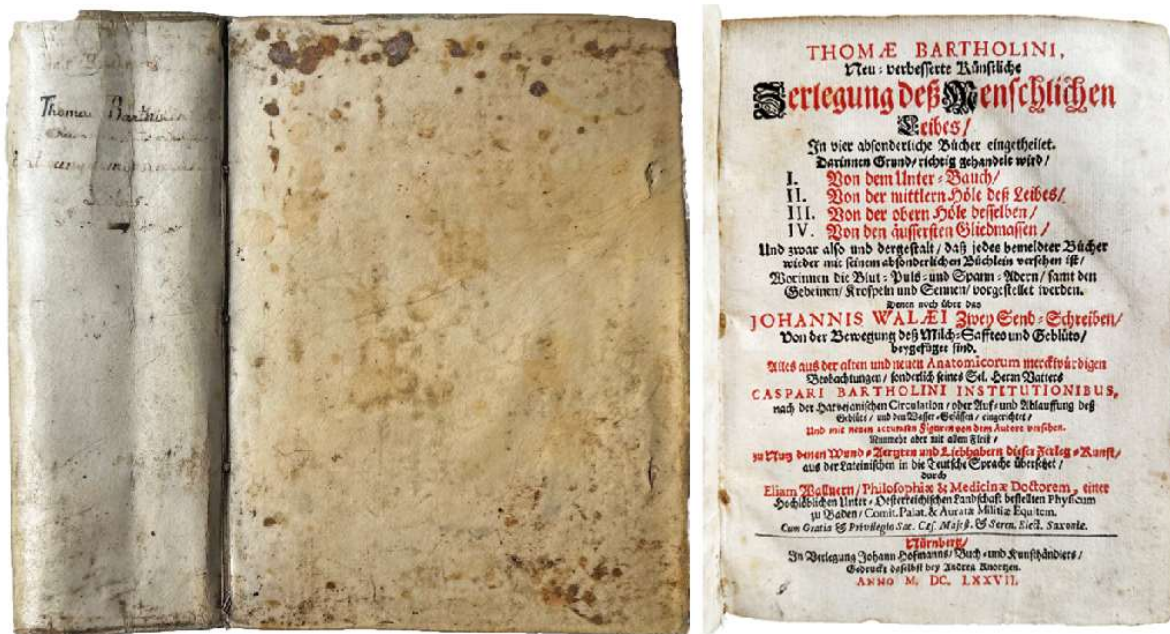 Thomae Bartholin
THOMÆ BARTHOLINI,
Neu-verbesserte Künstliche
Zerlegung deß Menschlichen
Leibes/
In vier absonderliche Bücher eingetheilet.
Darinnen Grund/richtig gehandelt wird/
I. Von dem Unter-Bauch/
II. Von der mittlern Höle deß Leibes/
III. Von der obern Höle desselben/
IV. Von den äussersten Gliedmassen/
Und zwar also und dergestalt/ daß jedes bemeldter Bücher
wieder mit seinem absonderlichen Büchlein versehen ist/
Worinnen die Blut-Puls-und Spann-Adern/ samt den
Gebeinen/ Krospeln und Sennen/ vorgestellet werden.
Denen noch über das
JOHANNIS WALÆI Zwey Send-Schreiben/
Von der Bewegung deß Milch-Safftes und Geblüts/
beygefüget sind.
Alles aus der alten und neuen Anatomicorum merckwürdigen
Beobachtungen/ sonderlich seines Sel. Herrn Vatters
CASPARI BARTHOLINI INSTITUTIONIBUS,
nach der Harvejanischen Circulation/ oder Auf-und Ablauffung deß
Geblüts/ und den Wasser-Gefässen/ eingerichtet/
Und mit neuen accuraten Figuren von dem Autore versehen.
Nunmehr aber mit allem Fleiß/
zu Nutz denen Wund-Aerzten und Liebhabern dieser Zerleg-Kunst/
aus der Lateinischen in die Teutsche Sprache übersetzet/
durch
Eliam Wallnern/ Philosophiæ & Medicinæ Doctorem, einer
Hochlöblichen Unter-Oesterreichischen Landschafft bestellten Physicum
zu Baden/ Comit. Palat. & Auratæ Militiæ Equitem.
Cum Gratia & Privilegio Sac. Cæs. Majest. & Seren. Elect. Saxoniæ.
Nürnberg/
In Verlegung Johann Hofmanns/ Buch-und Kunsthändlers/
Gedruckt daselbst bey Andrea Knortzen.
ANNO M. DC. LXXVII.